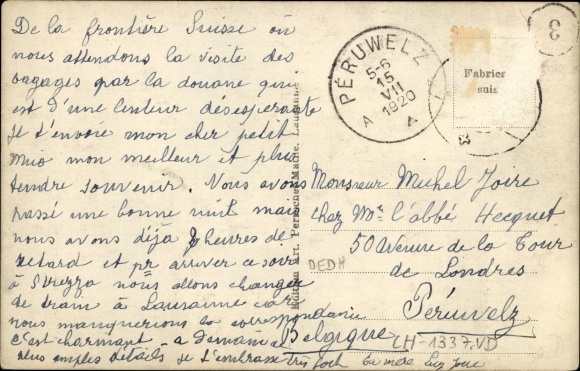 De la frontière Suisse où
nous attendons la visite des
bagages par la douane qui
est d'une lenteur désespérante
Je t'envoie mon cher petit
mon meilleur et plus
tendre souvenir. Nous avons
passé une bonne nuit mais
nous avons déja heures de
retard et pr arriver ce soir
à Strezza nous allons changer
de train à Lausanne car
nous manquerions la correspondance
C'est charmant - a demain
plus amples détails je t'embrasse très fort ta mère
Edition Art. Perrochet-Matile, Lausanne.
PÉRUWELZ
5-6
15
VII
1920
A A
Fabrica
suis
3
Monsieur Michel Joire
chez Mr l'abbé Hecquet
50 avenue de la Tour
de Londres
Péruwelz
Belgique
DEDH
CH-1337.VD